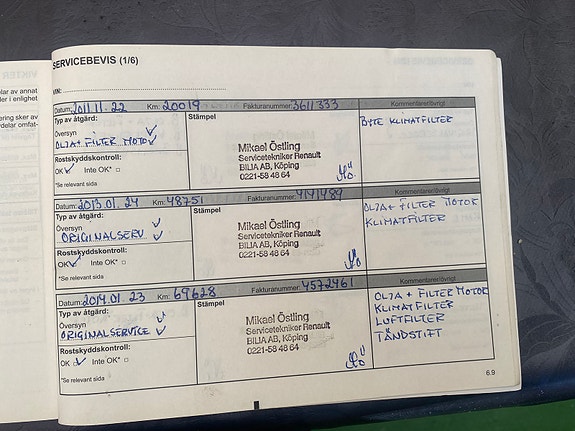 VIKTER
lar av annat
er i enlighet
ring sker av
delar omfat-
SERVICEBEVIS (1/6)
VIN:
Datum: 2011.11.22 Km: 20019 Fakturanummer: 3611333 Kommentarer/övrigt
Typ av åtgärd: Stämpel
Översyn
OLJA + FILTER MOTOR
BYTE KLIMATFILTER
Rostskyddskontroll:
OK Inte OK* □
*Se relevant sida
Mikael Östling
Servicetekniker Renault
BILIA AB, Köping
0221-58 48 64
Datum: 2013.01.24 Km: 48751 Fakturanummer: 4141489 Kommentarer/övrigt
Typ av åtgärd: Stämpel
Översyn
ORIGINALSERV
OLJA + FILTER MOTOR
KLIMATFILTER
Rostskyddskontroll:
OK Inte OK* □
*Se relevant sida
Mikael Östling
Servicetekniker Renault
BILIA AB, Köping
0221-58 48 64
Datum: 2014.01.23 Km: 69628 Fakturanummer: 4572461 Kommentarer/övrigt
Typ av åtgärd: Stämpel
Översyn
ORIGINALSERVICE
OLJA + FILTER MOTOR
KLIMATFILTER
LUFTFILTER
TÄNDSTIFT
Rostskyddskontroll:
OK □ Inte OK* □
*Se relevant sida
Mikael Östling
Servicetekniker Renault
BILIA AB, Köping
0221-58 48 64
6.9